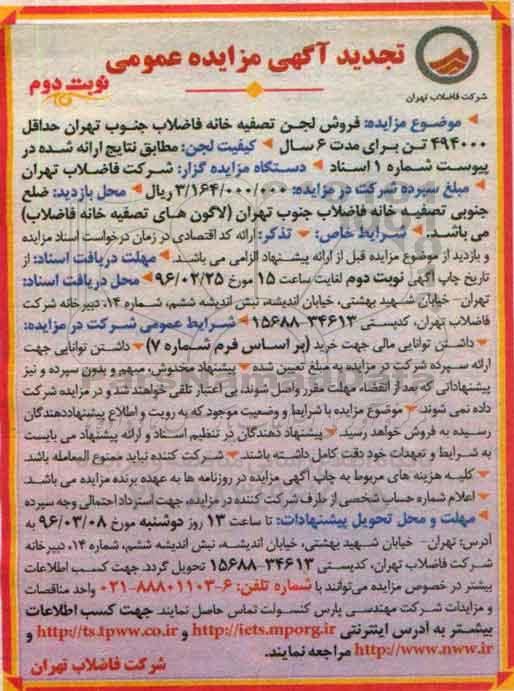 تجدید آگهی مزایده عمومی
نوبت دوم
شرکت فاضلاب تهران
موضوع مزایده: فروش لجن تصفیه خانه فاضلاب جنوب تهران حداقل
۴۹۴۰۰۰ تن برای مدت ۶ سال کیفیت لجن: مطابق نتایج ارائه شده در
پیوست شماره ۱ اسناد دستگاه مزایده گزار: شرکت فاضلاب تهران
مبلغ سپرده شرکت در مزایده: ۳/۱۶۴/۰۰۰/۰۰۰ ریال محل بازدید: ضلع
جنوبی تصفیه خانه فاضلاب جنوب تهران (لاگون های تصفیه خانه فاضلاب)
می باشد. شرایط خاص: تذکر: ارائه کد اقتصادی در زمان درخواست اسناد مزایده
و بازدید از موضوع مزایده قبل از ارائه پیشنهاد الزامی می باشد. مهلت دریافت اسناد: از
تاریخ چاپ آگهی نوبت دوم لغایت ساعت ۱۵ مورخ ۹۶/۰۲/۲۵ محل دریافت اسناد:
تهران- خیابان شهید بهشتی، خیابان اندیشه، نبش اندیشه ششم، شماره ۱۴، دبیرخانه شرکت
فاضلاب تهران، کدپستی ۳۴۶۱۳-۱۵۶۸۸ شرایط عمومی شرکت در مزایده:
داشتن توانایی مالی جهت خرید (بر اساس فرم شماره ۷) داشتن توانایی جهت
ارائه سپرده شرکت در مزایده به مبلغ تعیین شده پیشنهاد مخدوش، مبهم و بدون سپرده و نیز
پیشنهاداتی که بعد از انقضاء مهلت مقرر واصل شوند، بی اعتبار تلقی خواهند شد و در مزایده شرکت
داده نمی شوند. موضوع مزایده با شرایط و وضعیت موجود که به رویت و اطلاع پیشنهاددهندگان
رسیده به فروش خواهد رسید. پیشنهاد دهندگان در تنظیم اسناد و ارائه پیشنهاد می بایست
به شرایط و تعهدات خود دقت کامل داشته باشند شرکت کننده نباید ممنوع المعامله باشد.
کلیه هزینه های مربوط به چاپ آگهی مزایده در روزنامه ها به عهده برنده مزایده می باشد.
اعلام شماره حساب شخصی از طرف شرکت کننده در مزایده، جهت استرداد احتمالی وجه سپرده
مهلت و محل تحویل پیشنهادات: تا ساعت ۱۳ روز دوشنبه مورخ ۹۶/۰۳/۰۸ به
آدرس: تهران- خیابان شهید بهشتی، خیابان اندیشه، نبش اندیشه ششم، شماره ۱۴، دبیرخانه
شرکت فاضلاب تهران، کدپستی ۳۴۶۱۳-۱۵۶۸۸ تحویل گردد. جهت کسب اطلاعات
بیشتر در خصوص مزایده می‌توانند با شماره تلفن: ۶-۸۸۸۰۱۱۰۳-۰۲۱ واحد مناقصات
و مزایدات شرکت مهندسی پارس کنسولت تماس حاصل نمایند. جهت کسب اطلاعات
بیشتر به آدرس اینترنتی http://iets.mporg.ir و http://ts.tpww.co.ir و
http://www.nww.ir مراجعه نمایند.
شرکت فاضلاب تهران